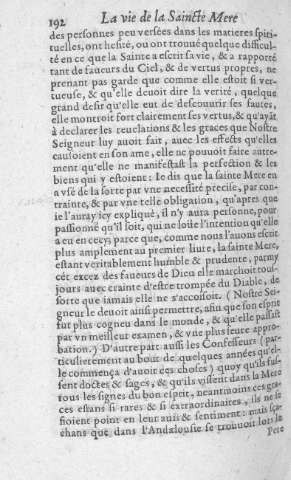 192 La vie de la Saincte Mere
des personnes peu versées dans les matieres spiri-
tuelles, ont hesité, ou ont trouué quelque difficul-
té en ce que la Sainte a escrit sa vie, & a rapporté
tant de faueurs du Ciel, & de vertus propres, ne
prenant pas garde que comme elle estoit si ver-
tueuse, & qu'elle deuoit dire la verité, quelque
grand desir qu'elle eut de descouurir ses fautes,
elle monstroit fort clairement ses vertus, & qu'ayāt
à declarer les reuelations & les graces que Nostre
Seigneur luy auoit fait, auec les effects qu'elles
causoient en son ame, elle ne pouuoit faire autre-
ment qu'elle ne manifestast la perfection & les
biens qui y estoient: Ie dis que la sainte Mere en
a vsé de la sorte par vne necessité precise, par con-
trainte, & par vne telle obligation, qu'apres que
ie l'auray icy expliqué, il n'y aura personne, pour
passionné qu'il soit, qui ne louë l'intention qu'elle
a eu en cecy; parce que, comme nous l'auons escrit
plus amplement au premier liure, la sainte Mere,
estant veritablement humble & prudente, parmy
cét excez des faueurs de Dieu elle marchoit tou-
jours auec crainte d'estre trompée du Diable, de
sorte que iamais elle ne s'accoisoit. (Nostre Sei-
gneur le deuoit ainsi permettre, afin que son esprit
fut plus cogneu dans le monde, & qu'elle passast
par vn meilleur examen, & vne plus seure appro-
bation.) D'autre part aussi les Confesseurs (par-
ticulierement au bout de quelques années qu'el-
le commença d'auoir ces choses) quoy qu'ils fus-
sent doctes & sages, & qu'ils vissent dans la Mere
tous les signes du bon esprit, neantmoins ces gra-
ces estans si rares & si extraordinaires, ils ne se
fioient point en leur auis & sentiment: mais sça-
chans que dans l'Andalousie se trouuoit lors le
Pere